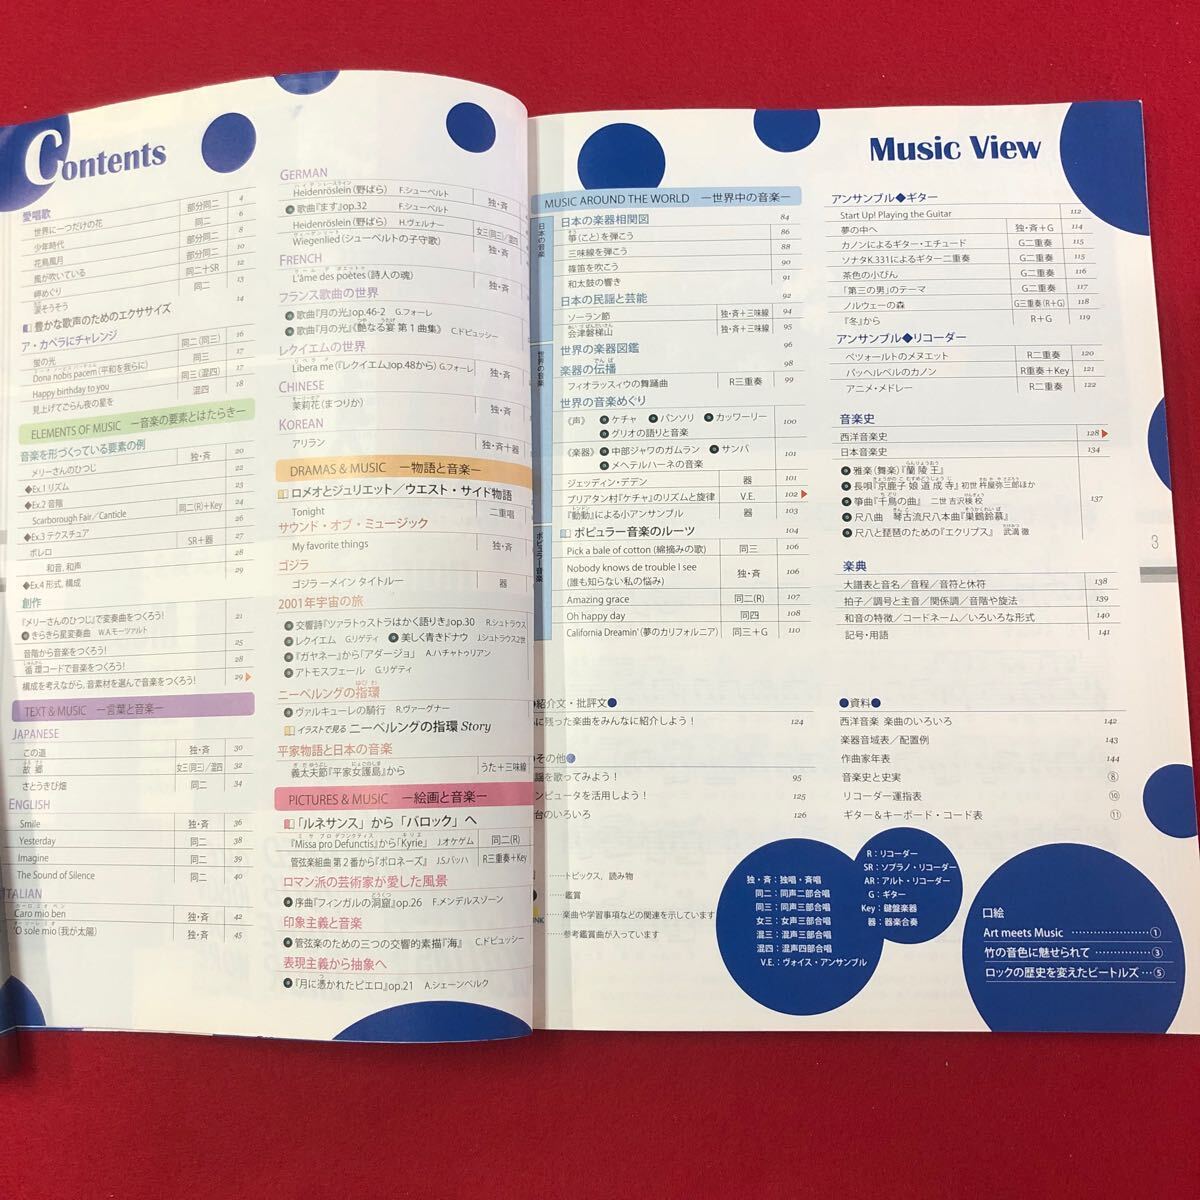 Contents
愛唱歌
世界に一つだけの花 部分同二 4
少年時代 同二 6
花鳥風月 部分同二 8
風が吹いている 部分同二 10
岬めぐり 同二＋SR 12
涙そうそう 同二 13
豊かな歌声のためのエクササイズ 14
ア・カペラにチャレンジ
蛍の光 同二(同三) 16
Dona nobis pacem (平和を我らに) 同三 17
Happy birthday to you 同三(混四) 17
見上げてごらん夜の星を 混四 18
ELEMENTS OF MUSIC ―音楽の要素とはたらき―
音楽を形づくっている要素の例 20
メリーさんのひつじ 独・斉 20
◆Ex.1 リズム 22
◆Ex.2 音階 23
Scarborough Fair／Canticle 同二(R)＋Key 24
◆Ex.3 テクスチュア 26
ボレロ SR＋器 27
和音、和声 28
◆Ex.4 形式、構成 29
創作
『メリーさんのひつじ』で変奏曲をつくろう！ 21
きらきら星変奏曲 W.A.モーツァルト
音階から音楽をつくろう！ 25
循環コードで音楽をつくろう！ 28
構成を考えながら、音素材を選んで音楽をつくろう！ 29
TEXT & MUSIC ―言葉と音楽―
JAPANESE
この道 独・斉 30
故郷 女三(同三)／混四 32
さとうきび畑 同二 34
ENGLISH
Smile 独・斉 36
Yesterday 同二 38
Imagine 同二 39
The Sound of Silence 同二 40
ITALIAN
Caro mio ben 独・斉 42
'O sole mio (我が太陽) 独・斉 45
GERMAN
Heidenröslein (野ばら) F.シューベルト 独・斉
歌曲『ます』op.32 F.シューベルト
Heidenröslein (野ばら) H.ヴェルナー 女三(同三)／混四
Wiegenlied (シューベルトの子守歌) 独・斉
FRENCH
L'âme des poètes (詩人の魂) 独・斉
フランス歌曲の世界
歌曲『月の光』op.46-2 G.フォーレ
歌曲『月の光』《艶なる宴 第1曲集》 C.ドビュッシー
レクイエムの世界
Libera me (『レクイエム』op.48から) G.フォーレ 独・斉
CHINESE
茉莉花 (まつりか) 独・斉
KOREAN
アリラン 独・斉＋器
DRAMAS & MUSIC ―物語と音楽―
ロメオとジュリエット／ウエスト・サイド物語
Tonight 二重唱
サウンド・オブ・ミュージック
My favorite things 独・斉
ゴジラ
ゴジラーメイン タイトルー 器
2001年宇宙の旅
交響詩『ツァラトゥストラはかく語りき』op.30 R.シュトラウス
レクイエム G.リゲティ 美しく青きドナウ J.シュトラウス2世
『ガヤネー』から「アダージョ」 A.ハチャトゥリアン
アトモスフェール G.リゲティ
ニーベルングの指環
ヴァルキューレの騎行 R.ヴァーグナー
イラストで見る ニーベルングの指環 Story
平家物語と日本の音楽
義太夫節『平家女護島』から うた＋三味線
PICTURES & MUSIC ―絵画と音楽―
「ルネサンス」から「バロック」へ
『Missa pro Defunctis』から「Kyrie」 J.オケゲム 同二(R)
管弦楽組曲 第2番から「ポロネーズ」 J.S.バッハ R三重奏＋Key
ロマン派の芸術家が愛した風景
序曲『フィンガルの洞窟』op.26 F.メンデルスゾーン
印象主義と音楽
管弦楽のための三つの交響的素描『海』 C.ドビュッシー
表現主義から抽象へ
『月に憑かれたピエロ』op.21 A.シェーンベルク
Music View
MUSIC AROUND THE WORLD ―世界中の音楽―
日本の音楽
日本の楽器相関図 84
箏(こと)を弾こう 86
三味線を弾こう 88
篠笛を吹こう 90
和太鼓の響き 91
日本の民謡と芸能 92
ソーラン節 独・斉＋三味線 94
会津磐梯山 独・斉＋三味線 95
世界の音楽
世界の楽器図鑑 96
楽器の伝播 98
フィオラッスィウの舞踊曲 R三重奏 99
世界の音楽めぐり
《声》 ケチャ パンソリ カッワーリー 100
グリオの語りと音楽
《楽器》 中部ジャワのガムラン サンバ 101
メヘテルハーネの音楽
ジェッディン・デデン 器 101
プリアタン村『ケチャ』のリズムと旋律 V.E. 102
『動動』による小アンサンブル 器 103
ポピュラー音楽
ポピュラー音楽のルーツ 104
Pick a bale of cotton (綿摘みの歌) 同三 106
Nobody knows de trouble I see
(誰も知らない私の悩み) 独・斉 106
Amazing grace 同二(R) 107
Oh happy day 同四 108
California Dreamin' (夢のカリフォルニア) 同三＋G 110
アンサンブル◆ギター
Start Up! Playing the Guitar 112
夢の中へ 独・斉＋G 114
カノンによるギター・エチュード G二重奏 115
ソナタK.331によるギター二重奏 G二重奏 115
茶色の小びん G二重奏 116
「第三の男」のテーマ G二重奏 117
ノルウェーの森 G三重奏(R＋G) 118
『冬』から R＋G 119
アンサンブル◆リコーダー
ベツォールトのメヌエット R二重奏 120
パッヘルベルのカノン R重奏＋Key 121
アニメ・メドレー R二重奏 122
音楽史
西洋音楽史 128
日本音楽史 134
雅楽(舞楽)『蘭陵王』
長唄『京鹿子娘道成寺』初世 杵屋弥三郎ほか
箏曲『千鳥の曲』 二世 吉沢検校 137
尺八曲 琴古流尺八本曲『巣鶴鈴慕』
尺八と琵琶のための『エクリプス』 武満 徹
楽典
大譜表と音名／音程／音符と休符 138
拍子／調号と主音／関係調／音階や旋法 139
和音の特徴／コードネーム／いろいろな形式 140
記号・用語 141
3
紹介文・批評文●
に残った楽曲をみんなに紹介しよう！ 124
その他●
謡を歌ってみよう！ 95
ンピュータを活用しよう！ 125
台のいろいろ 126
●資料●
西洋音楽 楽曲のいろいろ 142
楽器音域表／配置例 143
作曲家年表 144
音楽史と史実 ⑧
リコーダー運指表 ⑩
ギター＆キーボード・コード表 ⑪
……トピックス、読み物
……鑑賞
……楽曲や学習事項などの関連を示しています
……参考鑑賞曲が入っています
独・斉：独唱・斉唱
同二：同声二部合唱
同三：同声三部合唱
女三：女声三部合唱
混三：混声三部合唱
混四：混声四部合唱
V.E.：ヴォイス・アンサンブル
R：リコーダー
SR：ソプラノ・リコーダー
AR：アルト・リコーダー
G：ギター
Key：鍵盤楽器
器：器楽合奏
口絵
Art meets Music ……………①
竹の音色に魅せられて ……………③
ロックの歴史を変えたビートルズ …⑤